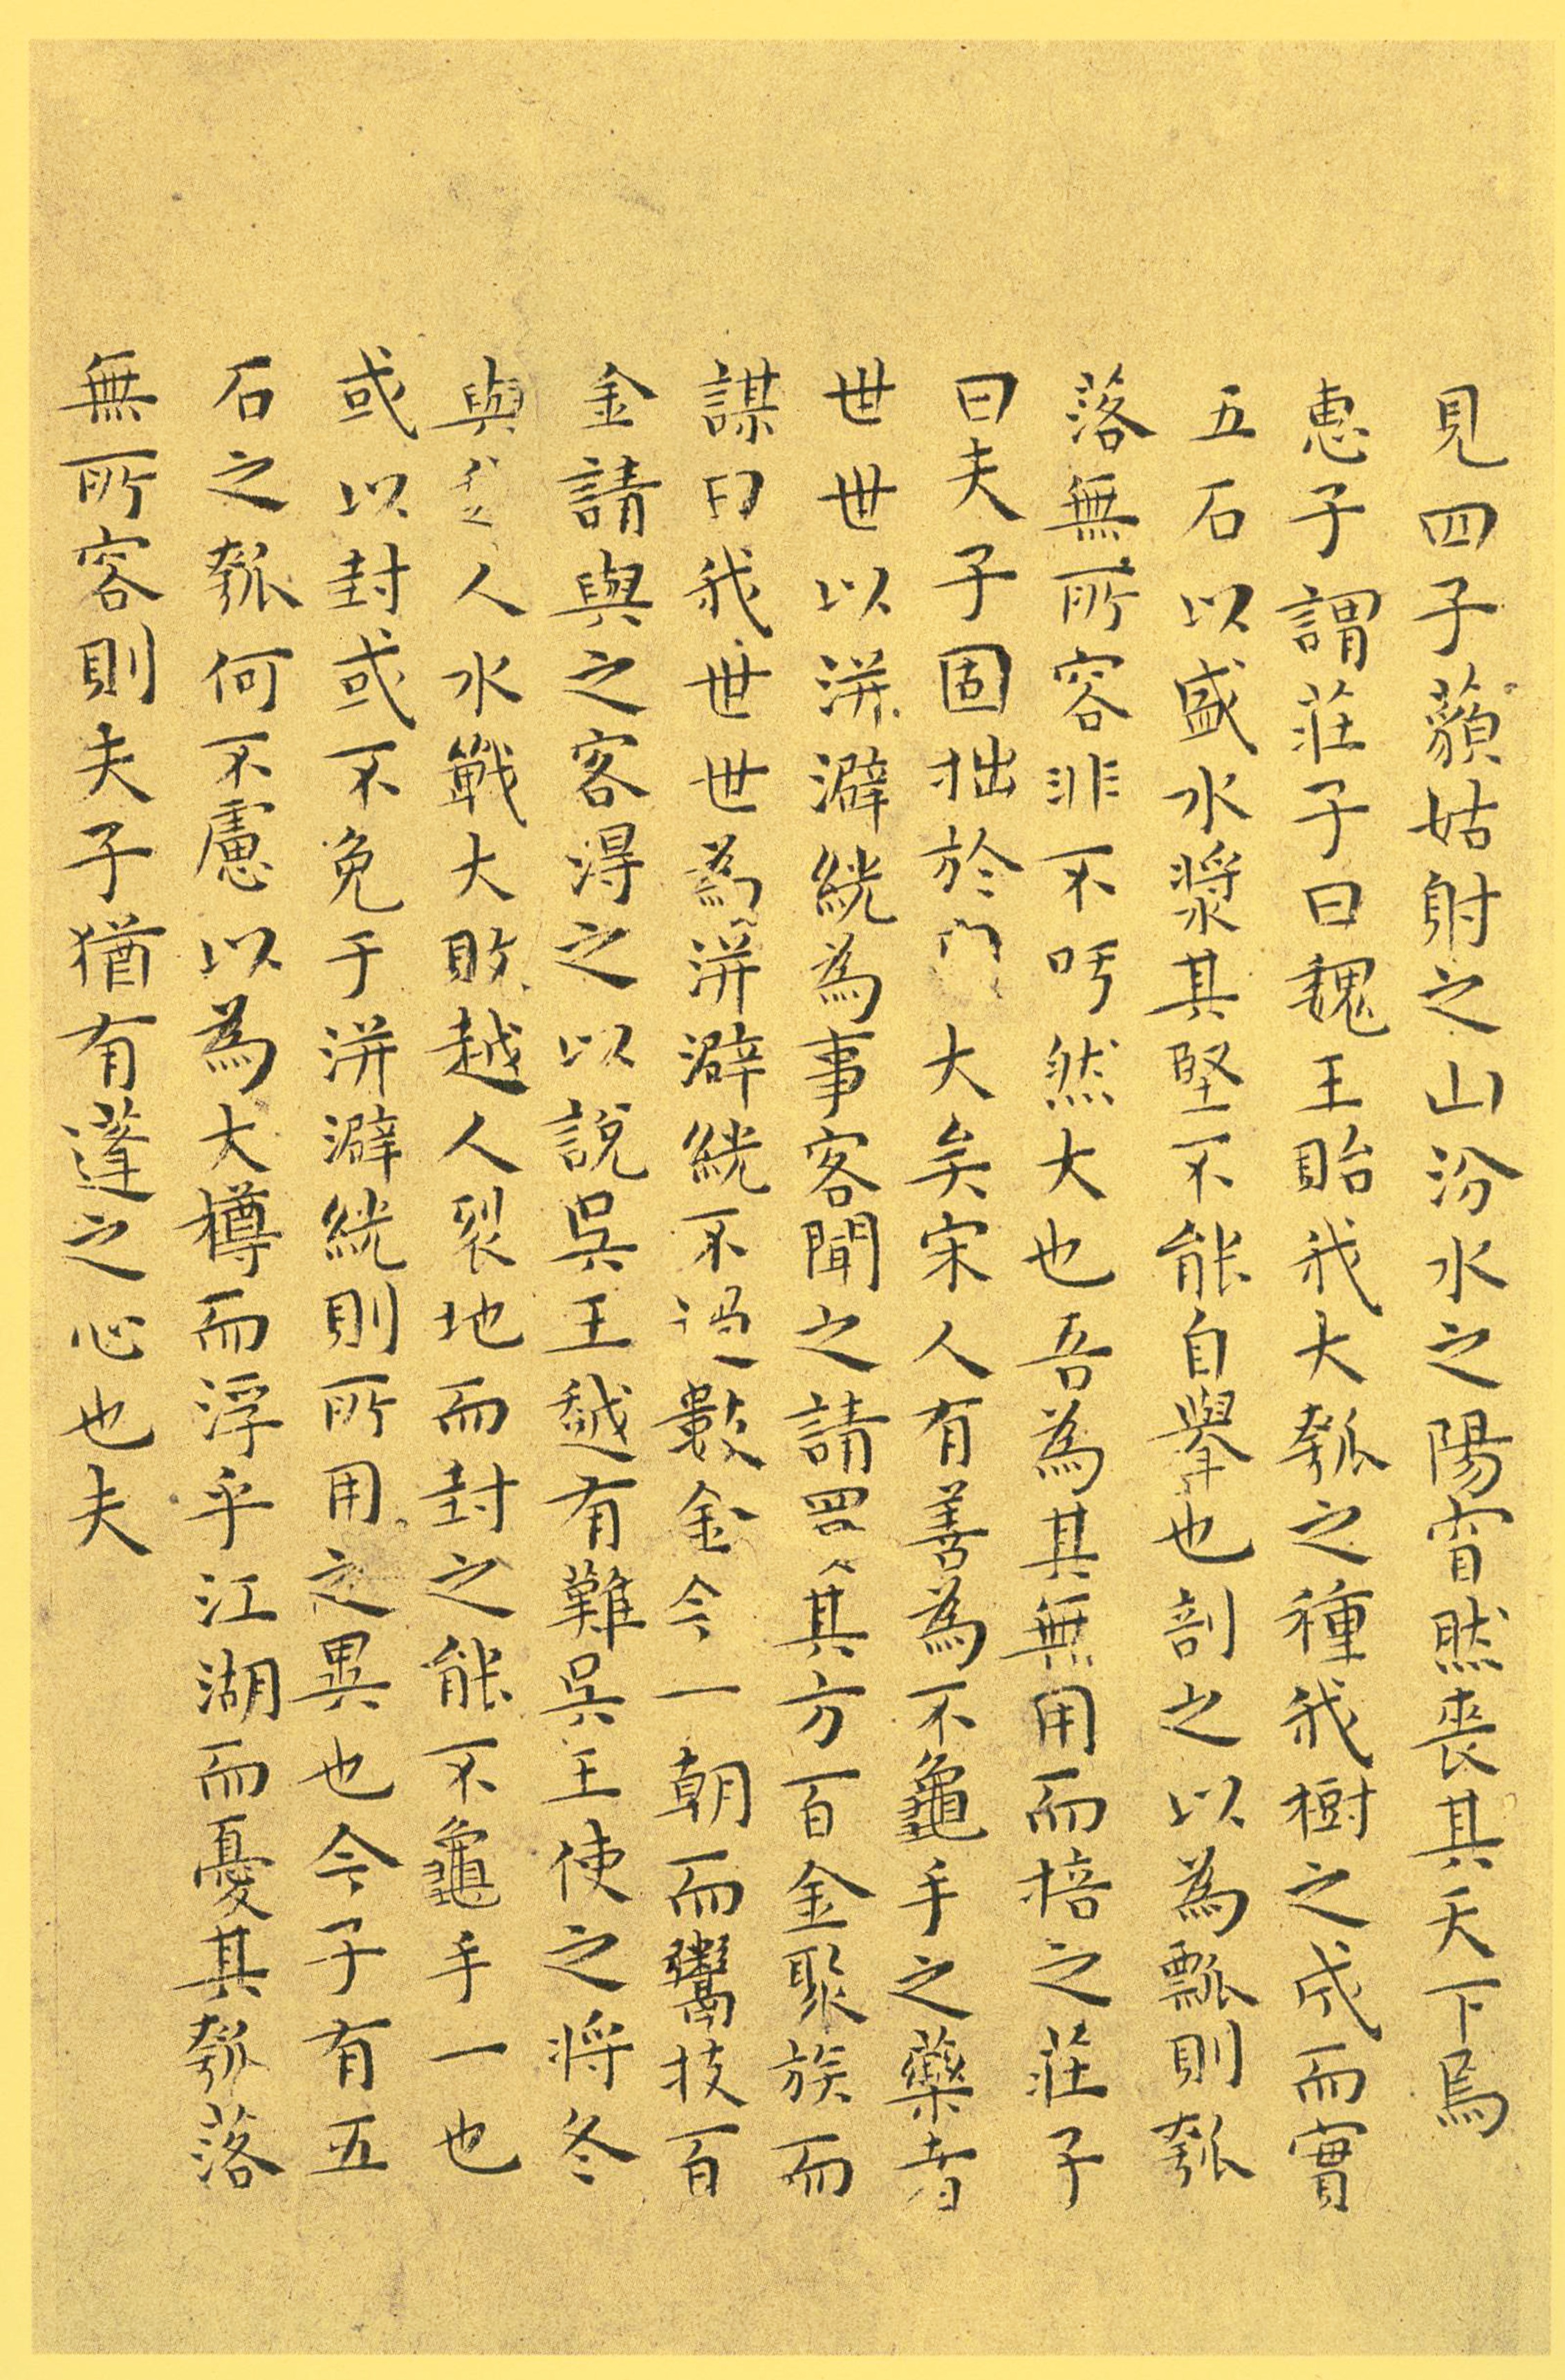 見四子藐姑射之山汾水之陽窅然喪其天下焉
惠子謂莊子曰魏王貽我大瓠之種我樹之成而實
五石以盛水漿其堅不能自舉也剖之以為瓢則瓠
落無所容非不呺然大也吾為其無用而掊之莊子
曰夫子固拙於大矣宋人有善為不龜手之藥者
世世以洴澼絖為事客聞之請買其方百金聚族而
謀曰我世世為洴澼絖不過數金今一朝而鬻技百
金請與之客得之以說吳王越有難吳王使之將冬
與人水戰大敗越人裂地而封之能不龜手一也
或以封或不免于洴澼絖則所用之異也今子有五
石之瓠何不慮以為大樽而浮乎江湖而憂其瓠落
無所容則夫子猶有蓬之心也夫